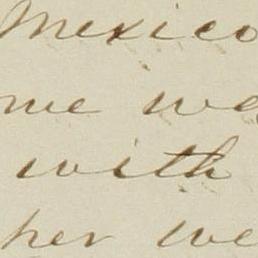 Mexico
me we
with
her we